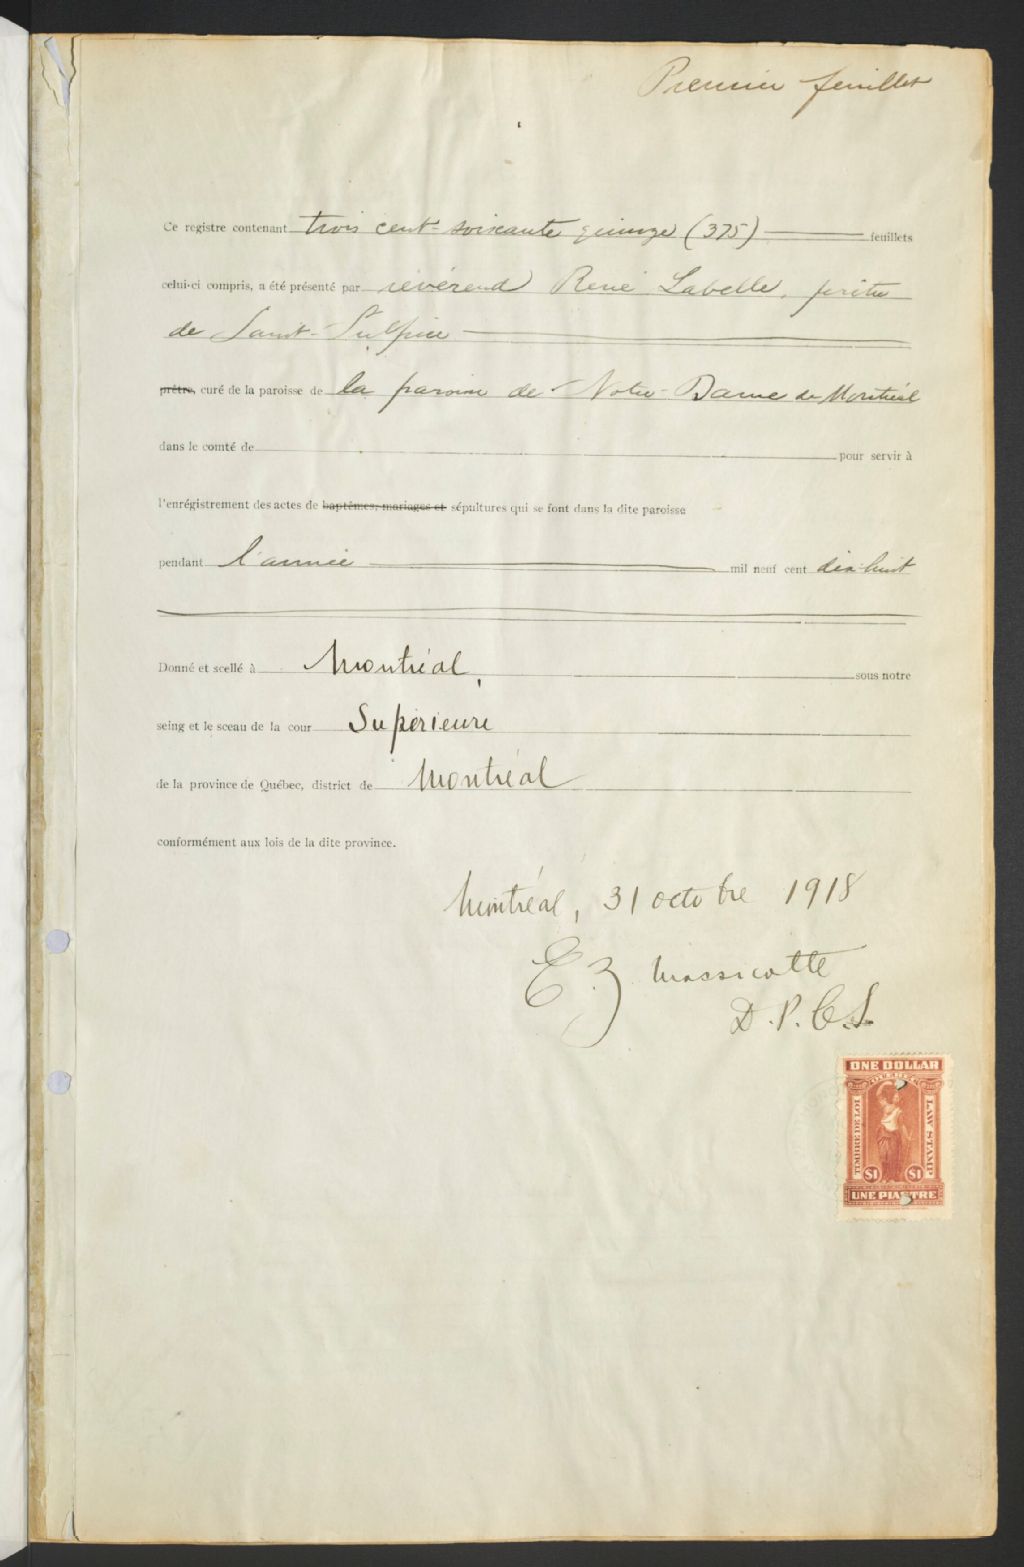 Premier feuillet
Ce registre contenant trois cent soixante quinze (375) feuillets
celui-ci compris, a été présenté par révérend René Labelle, prêtre
de Saint-Sulpice
prêtre, curé de la paroisse de la paroisse de Notre-Dame de Montréal
dans le comté de pour servir à
l'enrégistrement des actes de baptêmes, mariages et sépultures qui se font dans la dite paroisse
pendant l'année mil neuf cent dix-huit
Donné et scellé à Montréal, sous notre
seing et le sceau de la cour Supérieure
de la province de Québec, district de Montréal
conformément aux lois de la dite province.
Montréal, 31 octobre 1918
E Z Massicotte
D.P.C.S.
ONE DOLLAR
QUEBEC
TIMBRE DE LOI
LAW STAMP
$1 $1
UNE PIASTRE